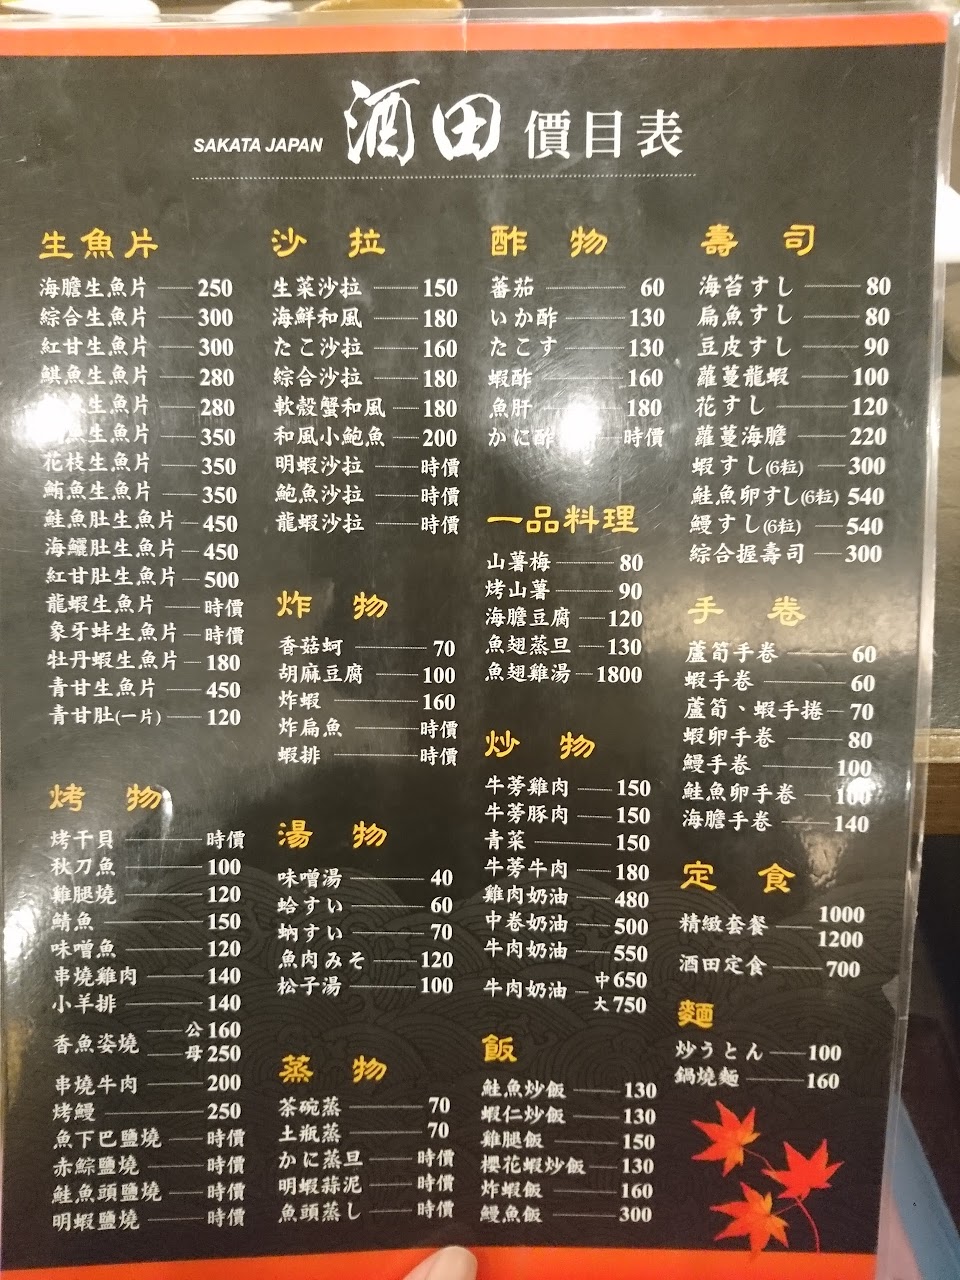 SAKATA JAPAN 酒田 價目表
生魚片
海膽生魚片 250
綜合生魚片 300
紅甘生魚片 300
鯕魚生魚片 280
魚生魚片 280
魚生魚片 350
花枝生魚片 350
鮪魚生魚片 350
鮭魚肚生魚片 450
海鱺肚生魚片 450
紅甘肚生魚片 500
龍蝦生魚片 時價
象牙蚌生魚片 時價
牡丹蝦生魚片 180
青甘生魚片 450
青甘肚(一片) 120
烤物
烤干貝 時價
秋刀魚 100
雞腿燒 120
鯖魚 150
味噌魚 120
串燒雞肉 140
小羊排 140
香魚姿燒 公160
母250
串燒牛肉 200
烤鰻 250
魚下巴鹽燒 時價
赤鯮鹽燒 時價
鮭魚頭鹽燒 時價
明蝦鹽燒 時價
沙拉
生菜沙拉 150
海鮮和風 180
たこ沙拉 160
綜合沙拉 180
軟殼蟹和風 180
和風小鮑魚 200
明蝦沙拉 時價
鮑魚沙拉 時價
龍蝦沙拉 時價
炸物
香菇蚵 70
胡麻豆腐 100
炸蝦 160
炸扁魚 時價
蝦排 時價
湯物
味噌湯 40
蛤すい 60
蚋すい 70
魚肉みそ 120
松子湯 100
蒸物
茶碗蒸 70
土瓶蒸 70
かに蒸旦 時價
明蝦蒜泥 時價
魚頭蒸し 時價
酢物
蕃茄 60
いか酢 130
たこす 130
蝦酢 160
魚肝 180
かに酢 時價
一品料理
山薯梅 80
烤山薯 90
海膽豆腐 120
魚翅蒸旦 130
魚翅雞湯 1800
炒物
牛蒡雞肉 150
牛蒡豚肉 150
青菜 150
牛蒡牛肉 180
雞肉奶油 480
中卷奶油 500
牛肉奶油 550
牛肉奶油 中650
大750
飯
鮭魚炒飯 130
蝦仁炒飯 130
雞腿飯 150
櫻花蝦炒飯 130
炸蝦飯 160
鰻魚飯 300
壽司
海苔すし 80
扁魚すし 80
豆皮すし 90
蘿蔓龍蝦 100
花すし 120
蘿蔓海膽 220
蝦すし(6粒) 300
鮭魚卵すし(6粒) 540
鰻すし(6粒) 540
綜合握壽司 300
手卷
蘆筍手卷 60
蝦手卷 60
蘆筍、蝦手捲 70
蝦卵手卷 80
鰻手卷 100
鮭魚卵手卷 100
海膽手卷 140
定食
精緻套餐 1000
1200
酒田定食 700
麵
炒うとん 100
鍋燒麵 160